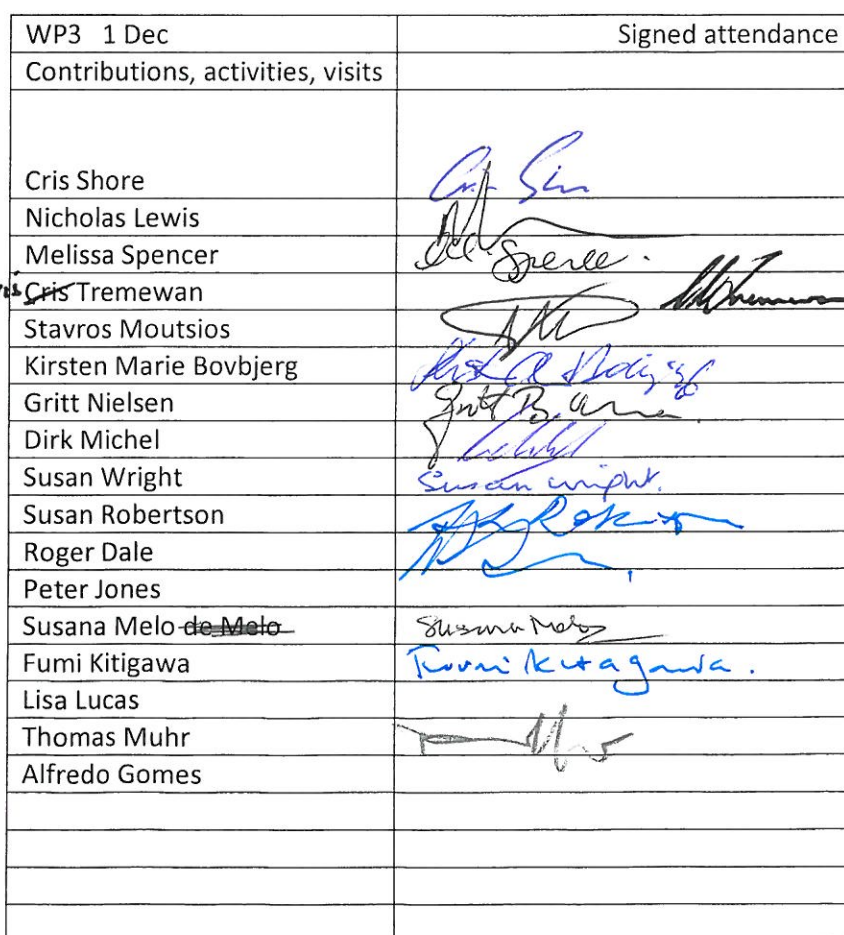 WP3 1 Dec Signed attendance
Contributions, activities, visits
Cris Shore
Nicholas Lewis
Melissa Spencer
Cris Tremewan
Stavros Moutsios
Kirsten Marie Bovbjerg
Gritt Nielsen
Dirk Michel
Susan Wright Susan Wright.
Susan Robertson
Roger Dale
Peter Jones
Susana Melo de Melo Susana Melo
Fumi Kitigawa Fumi Kitagawa.
Lisa Lucas
Thomas Muhr
Alfredo Gomes